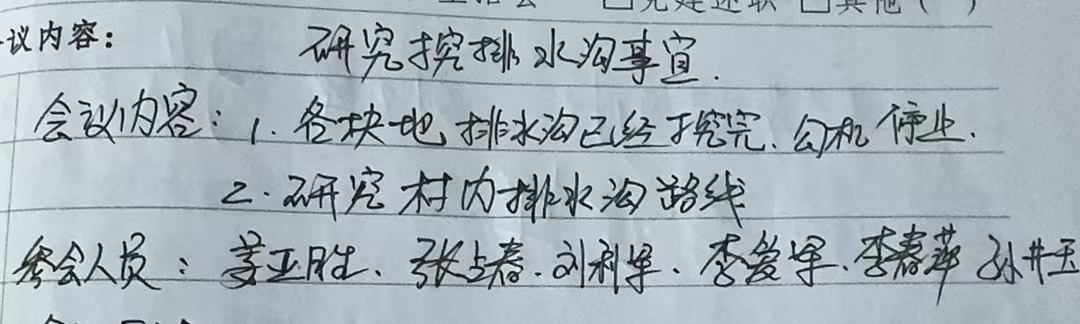 □党建述职 □其他（ ）
议内容：
研究挖排水沟事宜.
会议内容：1. 各块地排水沟已经挖完. 勾机停止.
2. 研究村内排水沟路线
参会人员：姜亚胜、张占春. 刘利军、李爱军. 李春萍 孙井玉